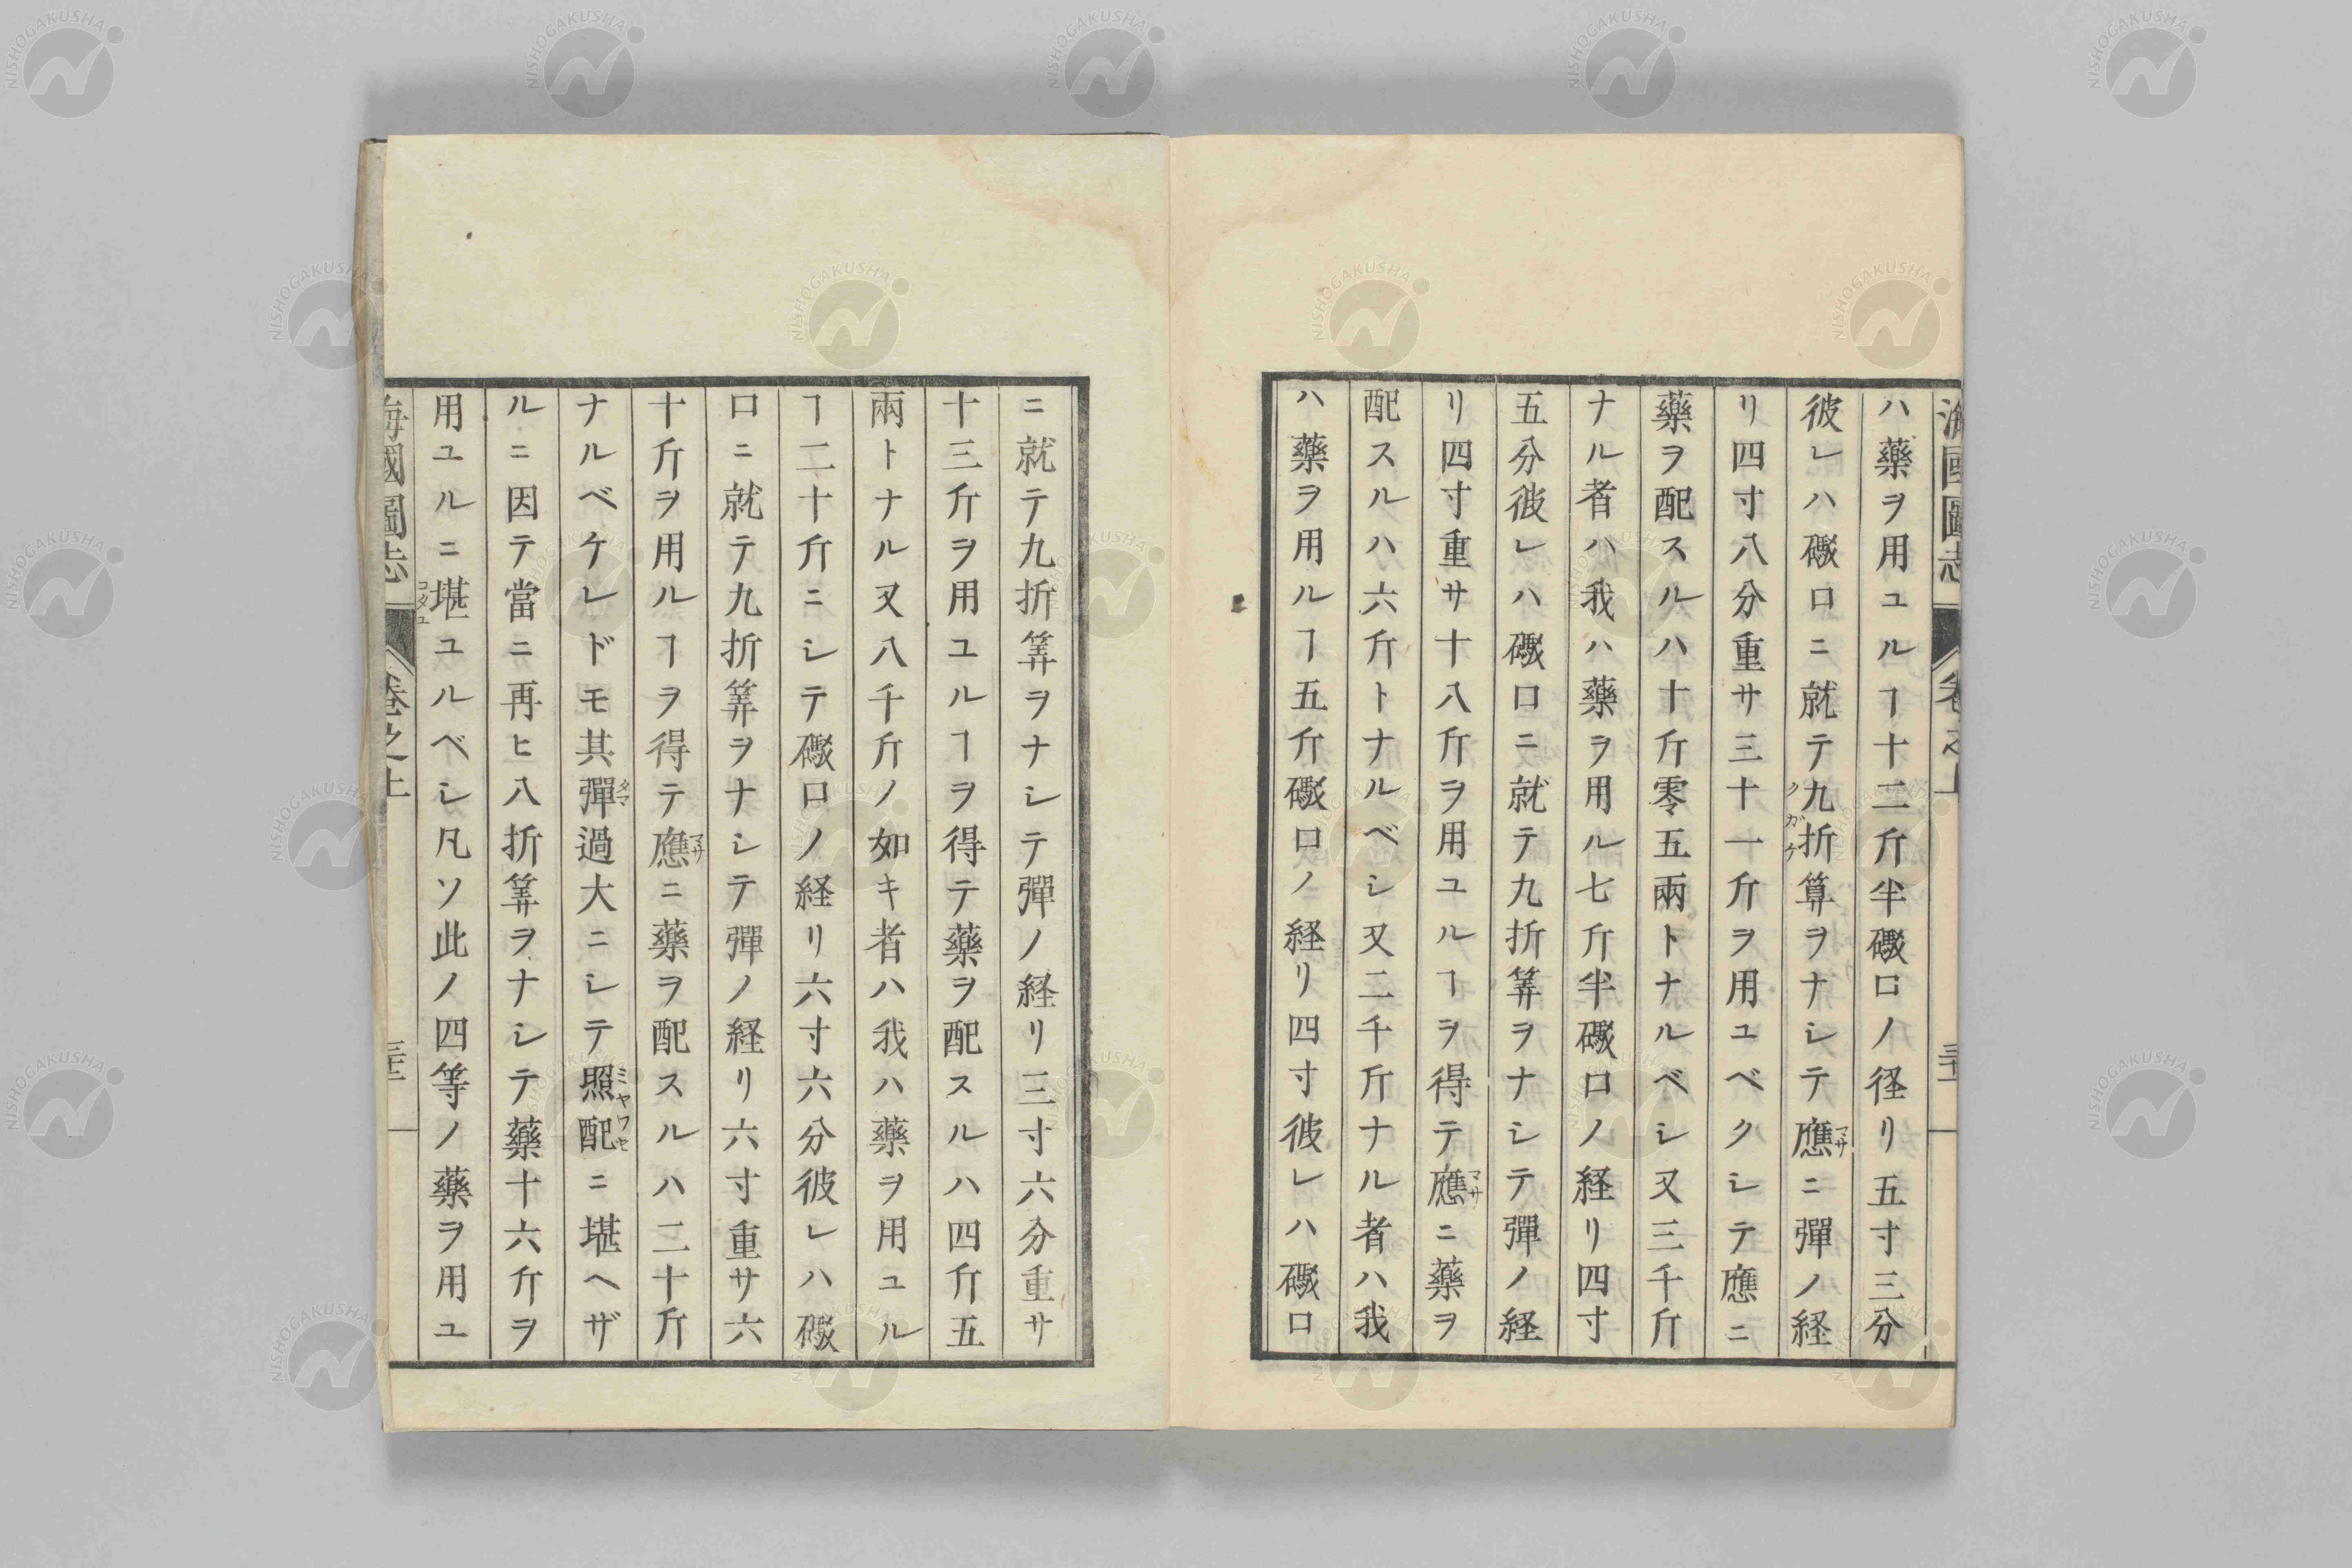 海國圖志 卷之上
ハ藥ヲ用ユルヿ十二斤半礮口ノ径リ五寸三分
彼レハ礮口ニ就テ九折算ヲナシテ應ニ彈ノ経
クガケ
マサ
リ四寸八分重サ三十一斤ヲ用ユベクシテ應ニ
藥ヲ配スルハ十斤零五兩トナルベシ又三千斤
ナル者ハ我ハ藥ヲ用ル七斤半礮口ノ経リ四寸
五分彼レハ礮口ニ就テ九折筭ヲナシテ彈ノ経
リ四寸重サ十八斤ヲ用ユルヿヲ得テ應ニ藥ヲ
マサ
配スルハ六斤トナルベシ又二千斤ナル者ハ我
ハ藥ヲ用ルヿ五斤礮口ノ経リ四寸彼レハ礮口
ニ就テ九折筭ヲナシテ彈ノ経リ三寸六分重サ
十三斤ヲ用ユルヿヲ得テ藥ヲ配スルハ四斤五
兩トナル又八千斤ノ如キ者ハ我ハ藥ヲ用ユル
ヿ二十斤ニシテ礮口ノ経リ六寸六分彼レハ礮
口ニ就テ九折筭ヲナシテ彈ノ経リ六寸重サ六
十斤ヲ用ルヿヲ得テ應ニ藥ヲ配スルハ二十斤
マサ
ナルベケレドモ其彈過大ニシテ照配ニ堪ヘザ
タマ
ミヤワセ
ルニ因テ當ニ再ヒ八折筭ヲナシテ藥十六斤ヲ
用ユルニ堪ユルベシ凡ソ此ノ四等ノ藥ヲ用ユ
コタユ
海國圖志 卷之上
NISHOGAKUSHA